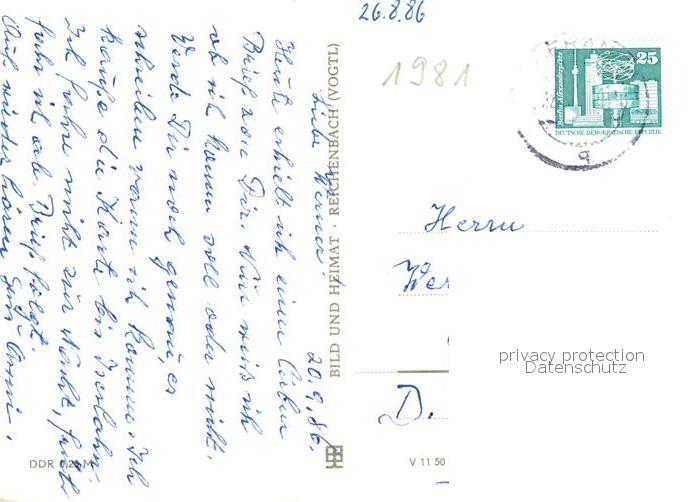 26.8.86
1981
25
Berlin, Alexanderplatz
DEUTSCHE DEMOKRATISCHE REPUBLIK
20.9.86.
Liebe Werner!
Heute erhielt ich einen lieben
Brief von Dir. Nun weiß ich
ob ich kommen soll oder nicht.
Werde Dir noch genau, es
schreiben wann ich komme. Ich
kaufe die Karte bis Iserlohn.
Ich fahre nicht zur Nacht, früh
fahr ich ab. Brief folgt.
Auf wiederhören
BILD UND HEIMAT · REICHENBACH (VOGTL)
DDR
M
V 11 50
Herrn
Wer
D.
privacy protection
Datenschutz